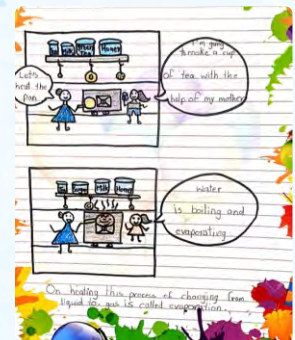 Honey
I'm going
to make a cup
of tea with the
help of my mother
Let's
heat the
Pan.
Milk
Honey
Water
is boiling and
evaporating
On heating this process of changing from
liquid to gas is called evaporation.